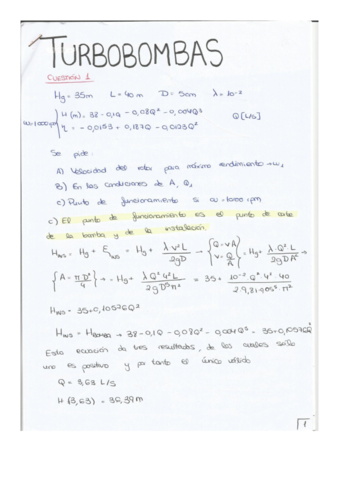 TURBOBOMBAS
CUESTIÓN 1
Hg = 35m L = 40m D = 5cm λ = 10⁻²
H (m) = 38 - 0,1Q - 0,08Q² - 0,004Q³ Q [L/s]
η = - 0,0153 + 0,187Q - 0,0123Q²
Se pide:
A) Velocidad del rotor para máximo rendimiento → ω₁
B) En las condiciones de A, Q₁
C) Punto de funcionamiento si ω = 1000 rpm
c) El punto de funcionamiento es el punto de corte
de la bomba y de la instalación.
= Hg + = Hg + λ v² L / 2gD → { Q = vA v = Q/A } = Hg + λ Q² L / 2gDA² →
{ A = πD²/4 } → = Hg + λ Q² 4² L / 2gD⁵π² = 35 + 10⁻² Q² 4² 40 / 2·9,81·0,05⁵ π²
= 35 + 0,10576Q²
= → 38 - 0,1Q - 0,08Q² - 0,004Q³ = 35 + 0,10576Q²
Esta ecuación da tres resultados, de los cuales sólo
uno es positivo y por tanto el único válido
Q = 3,63 L/s
H (3,63) = 36,39m
1